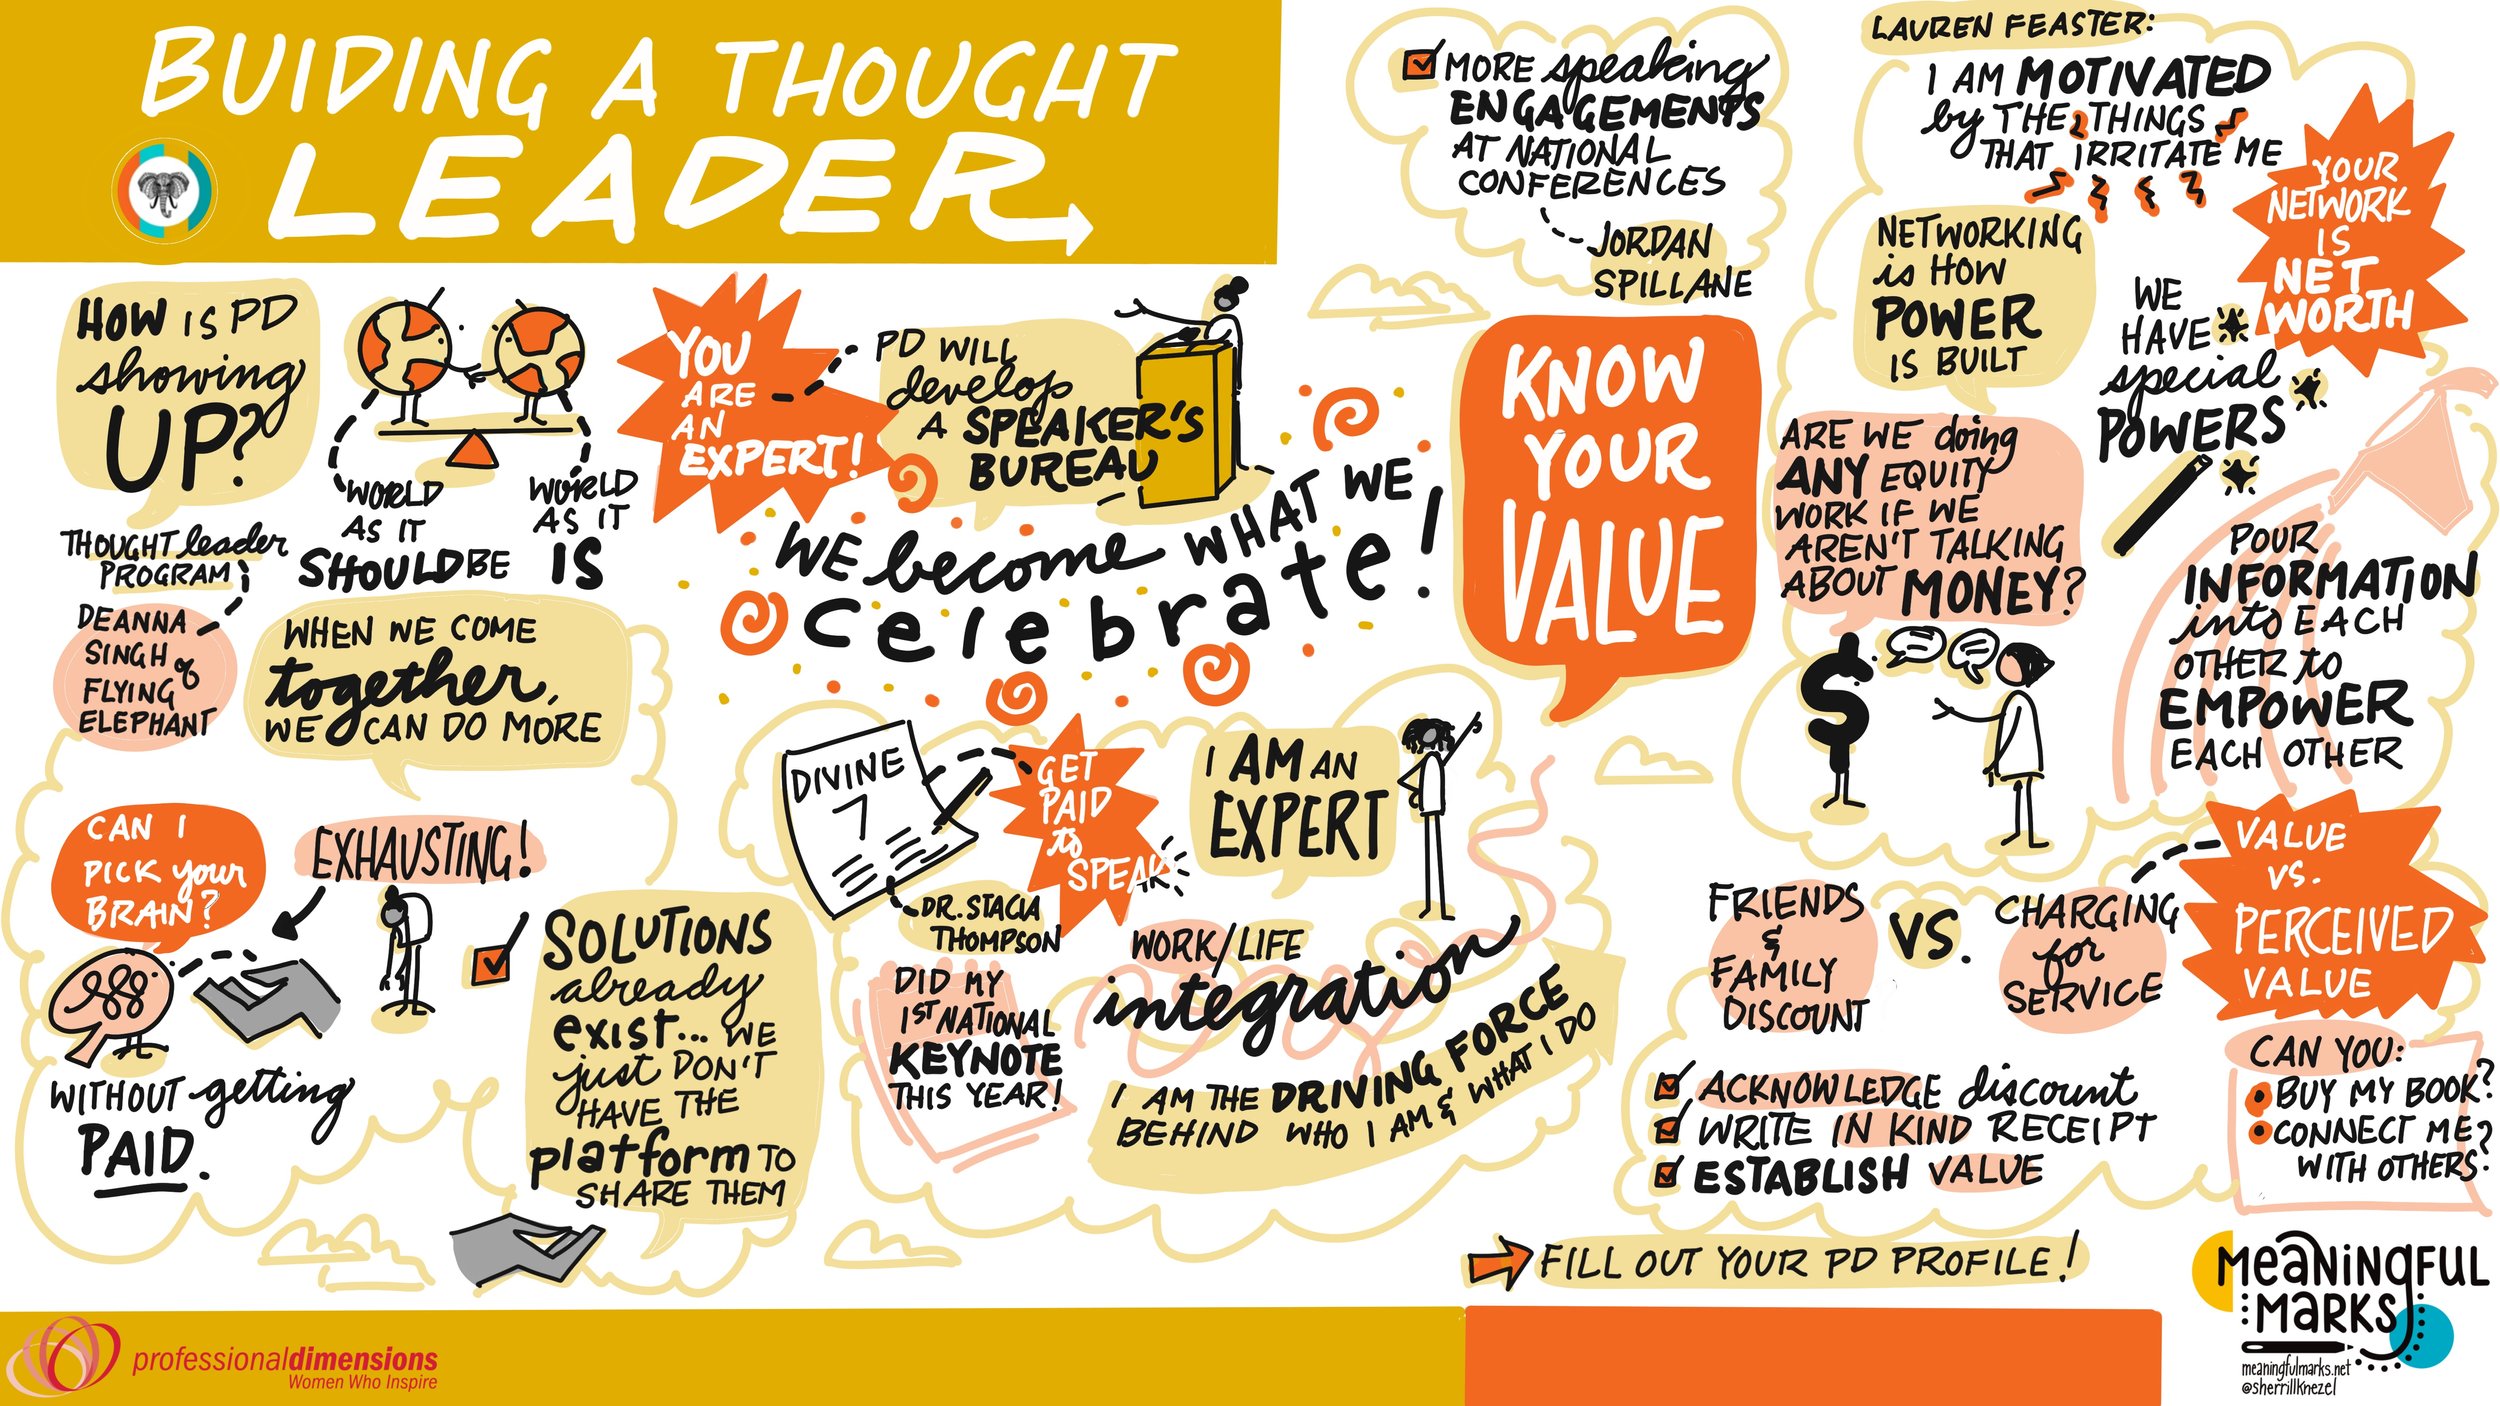 BUIDING A THOUGHT
LEADER
HOW IS PD
showing
UP?
THOUGHT leader
PROGRAM
DEANNA
SINGH of
FLYING
ELEPHANT
WORLD
AS IT
SHOULD BE
WORLD
AS IT
IS
WHEN WE COME
together,
WE CAN DO MORE
YOU
ARE
AN
EXPERT!
PD WILL
develop
A SPEAKER'S
BUREAU
WE become WHAT WE
celebrate!
CAN I
PICK your
BRAIN?
EXHAUSTING!
WITHOUT getting
PAID.
SOLUTIONS
already
exist... WE
just DON'T
HAVE THE
platform TO
SHARE THEM
DIVINE
7
DR. STACIA
THOMPSON
GET
PAID
to
SPEAK
DID MY
1ST NATIONAL
KEYNOTE
THIS YEAR!
I AM AN
EXPERT
WORK/LIFE
integration
I AM THE DRIVING FORCE
BEHIND WHO I AM & WHAT I DO
MORE speaking
ENGAGEMENTS
AT NATIONAL
CONFERENCES
JORDAN
SPILLANE
KNOW
YOUR
VALUE
LAUREN FEASTER:
I AM MOTIVATED
by THE THINGS
THAT IRRITATE ME
NETWORKING
is HOW
POWER
IS BUILT
YOUR
NETWORK
IS
NET
WORTH
WE
HAVE
special
POWERS
ARE WE doing
ANY EQUITY
WORK IF WE
AREN'T TALKING
ABOUT MONEY?
$
POUR
INFORMATION
into EACH
OTHER to
EMPOWER
EACH OTHER
FRIENDS
&
FAMILY
DISCOUNT
VS.
CHARGING
for
SERVICE
VALUE
VS.
PERCEIVED
VALUE
ACKNOWLEDGE discount
WRITE IN KIND RECEIPT
ESTABLISH VALUE
CAN YOU:
BUY MY BOOK?
CONNECT ME?
WITH OTHERS?
FILL OUT YOUR PD PROFILE!
professionaldimensions
Women Who Inspire
MeaNiNgFuL
MaRKS
meaningfulmarks.net
@sherrillknezel